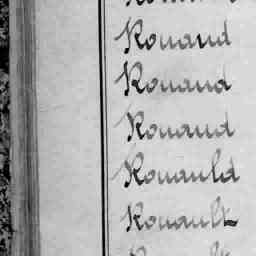 Rouaud
Rouaud
Rouaud
Rouauld
Rouault